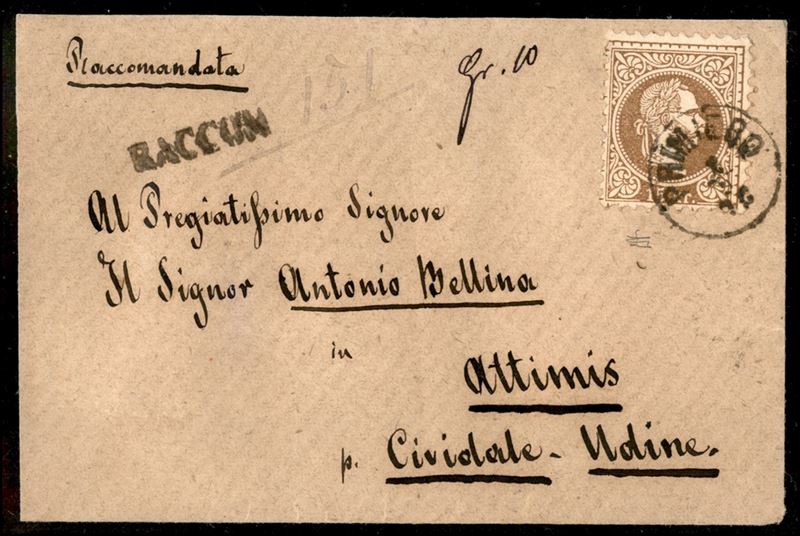 Raccomandata
Gr. 10
151
RACCOM
PRIMIERO
Al Pregiatißimo Signore
Il Signor Antonio Bellina
in
Attimis
p. Cividale - Udine.